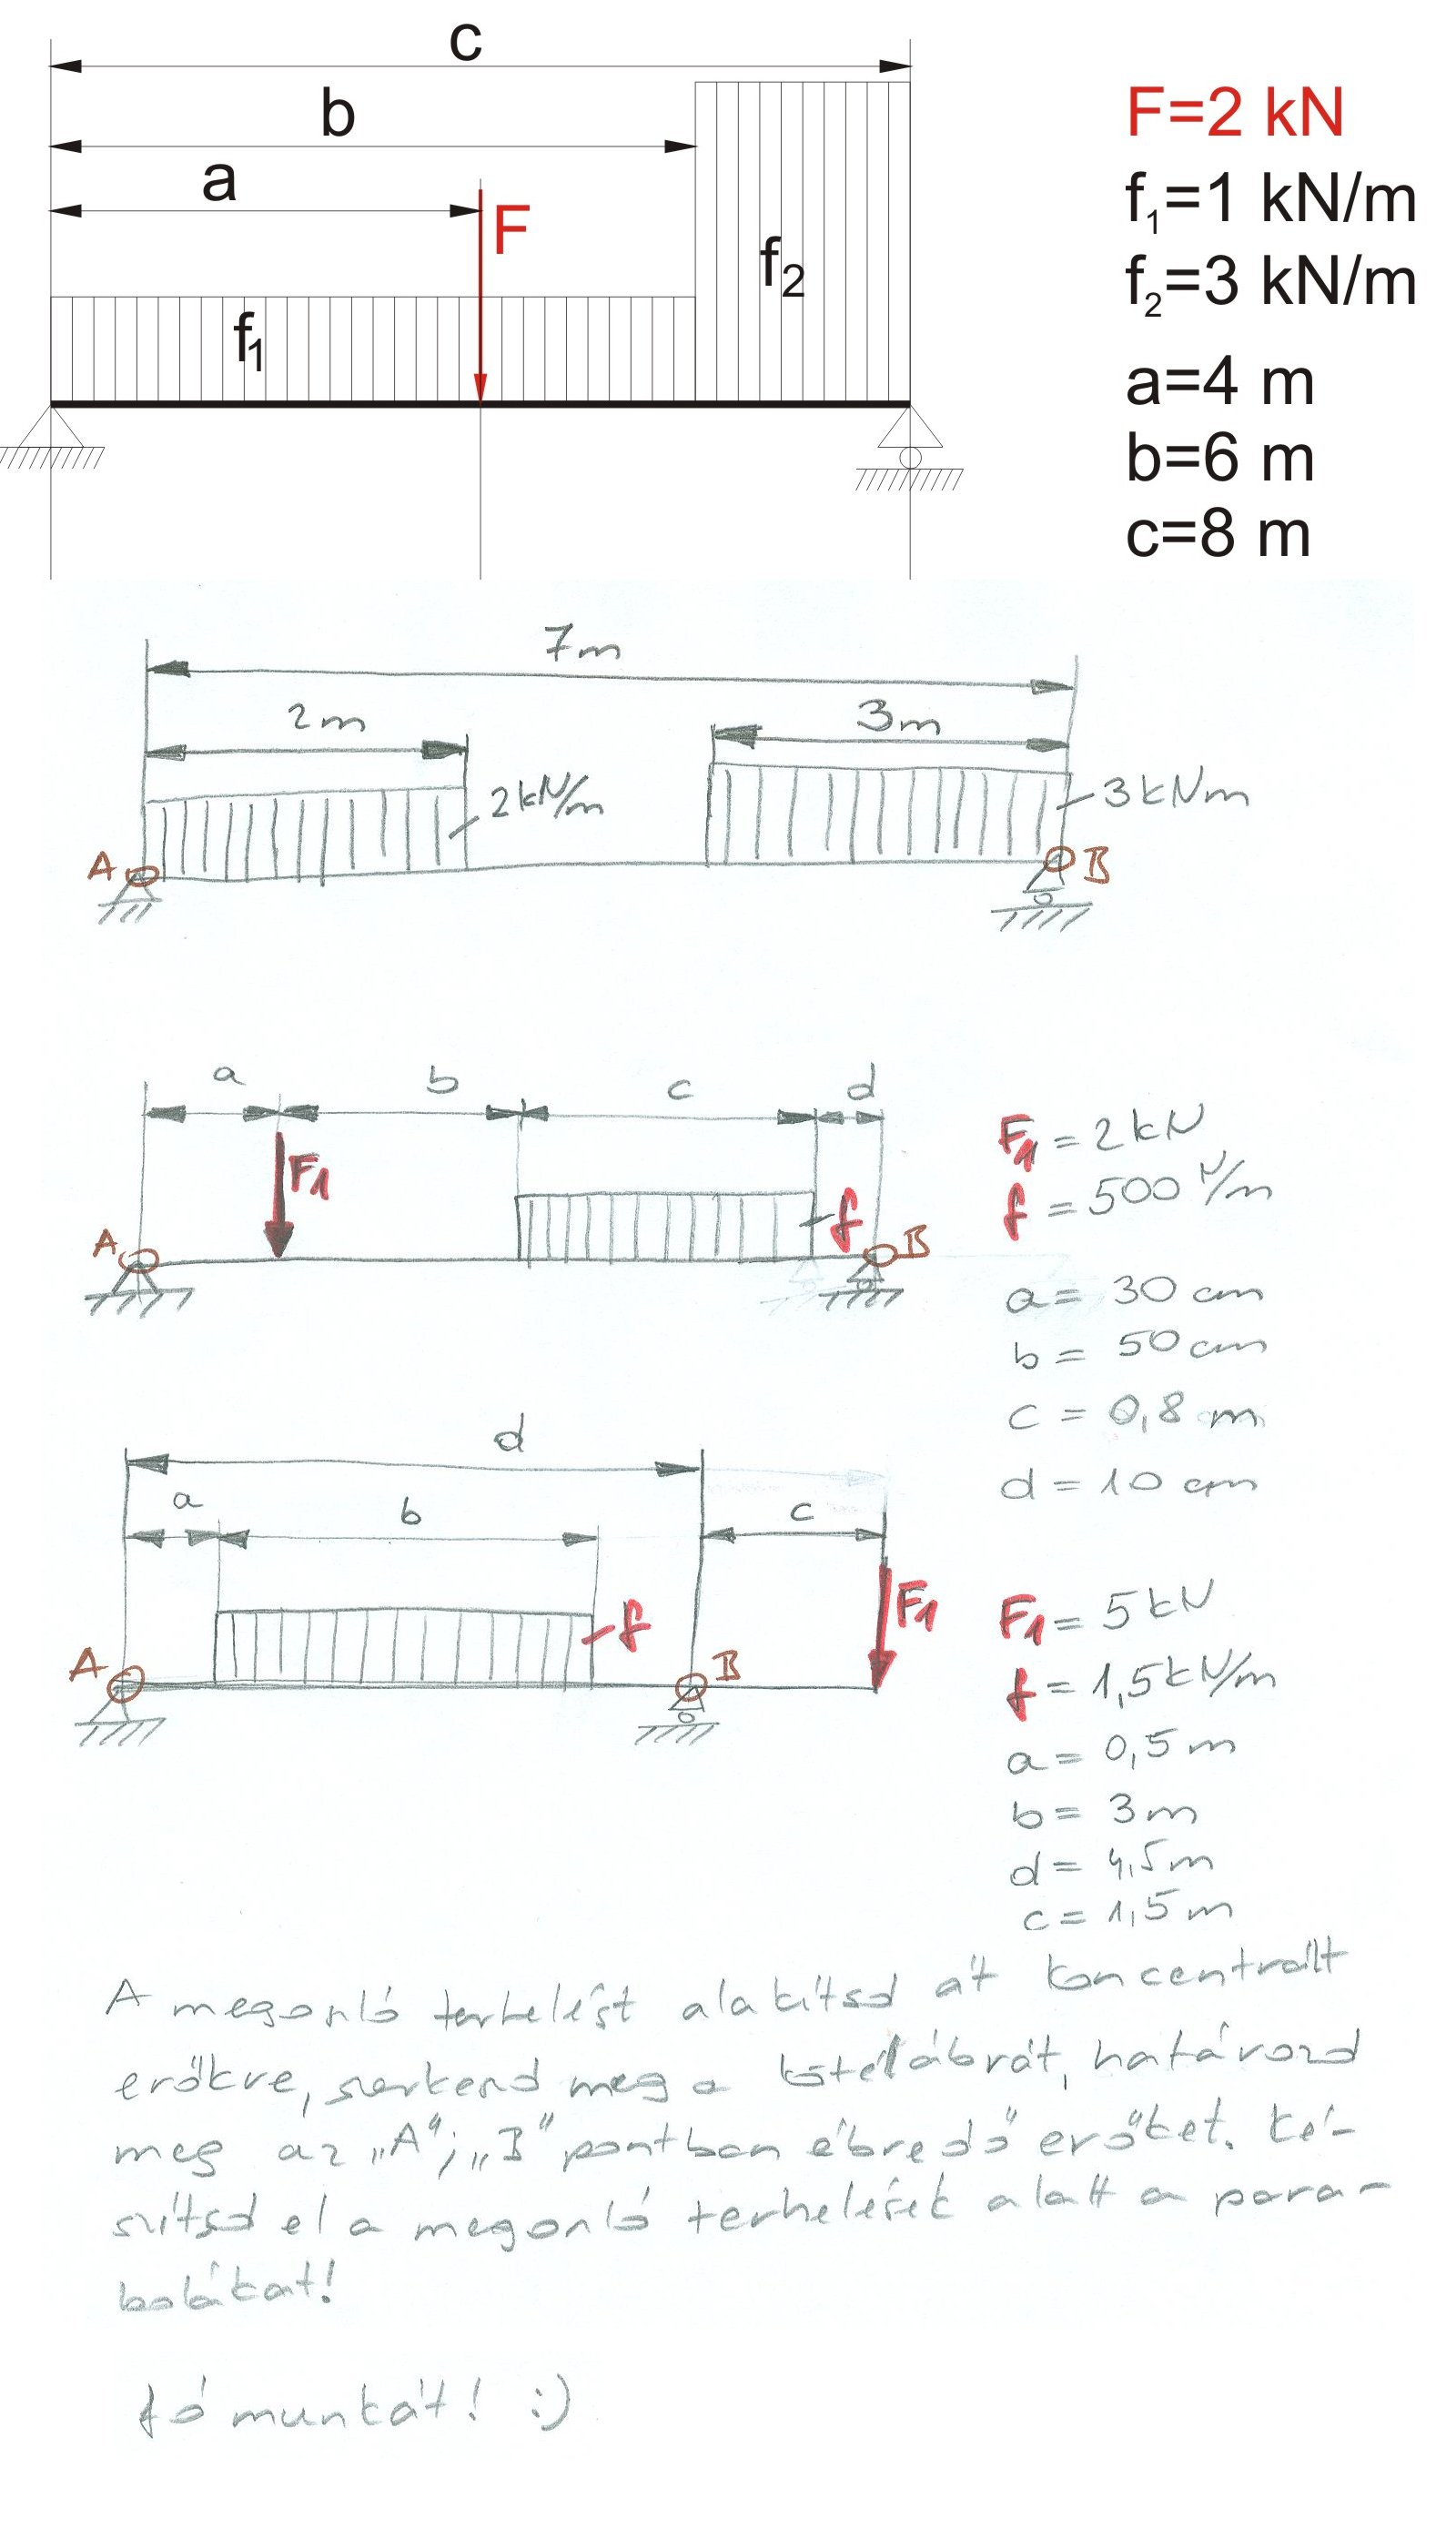 c
b
a
F
f1
f2
F=2 kN
f1=1 kN/m
f2=3 kN/m
a=4 m
b=6 m
c=8 m
7m
2m
3m
2kN/m
3kNm
A
B
a
b
c
d
F1
f
A
B
F1 = 2kN
f = 500 N/m
a = 30 cm
b = 50 cm
c = 0,8 m
d = 10 cm
d
a
b
c
f
F1
A
B
F1 = 5kN
f = 1,5kN/m
a = 0,5m
b = 3m
d = 4,5m
c = 1,5m
A megonló terhelést alakítsd át koncentrált
erőkre, szerkeszd meg a kötélábrát, határozd
meg az „A”; „B” pontban ébredő erőket. Ké-
szítsd el a megonló terhelések alatt a para-
bolákat!
Jó munkát! :)